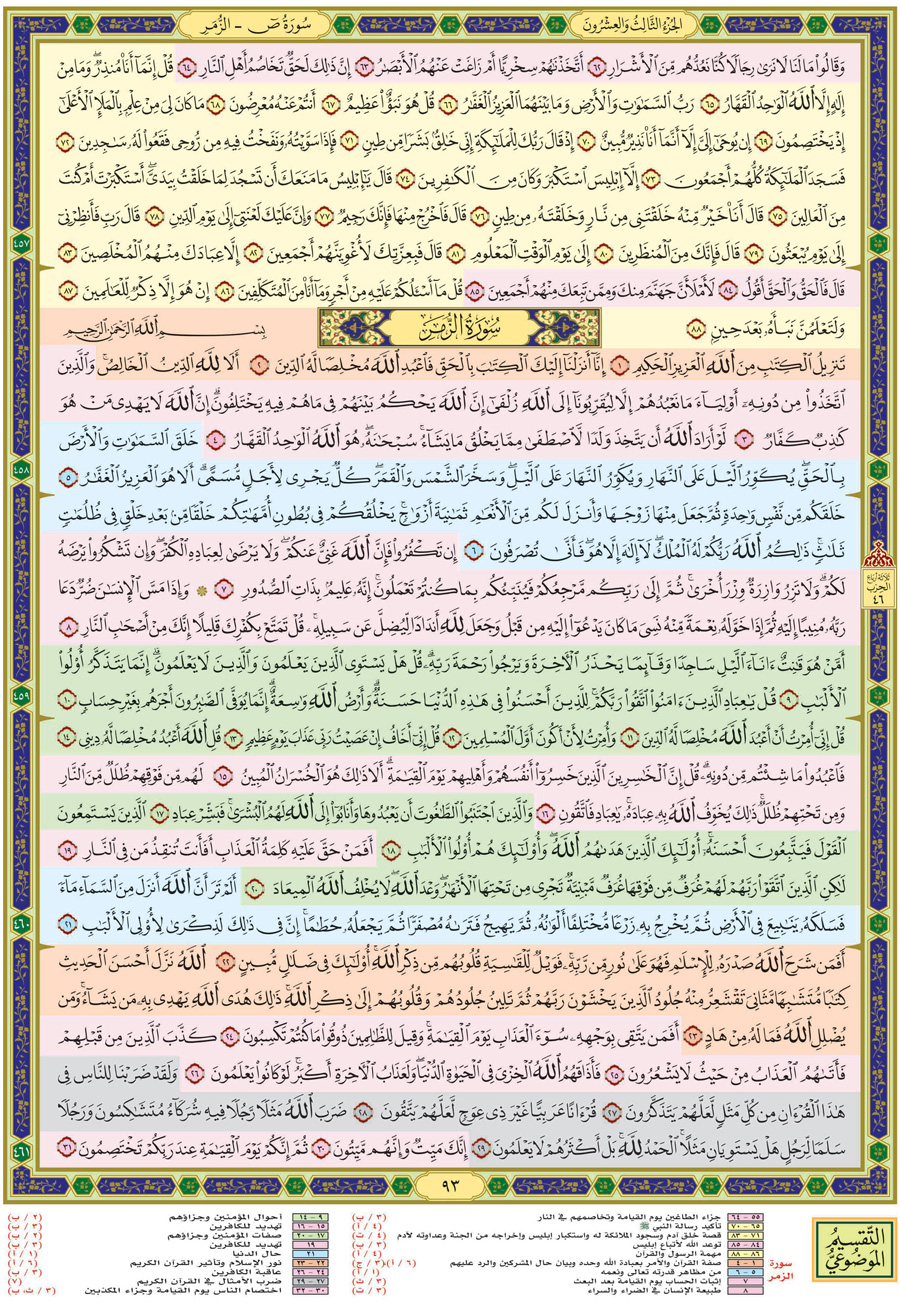 الجُزْءُ الثَّالِثُ وَالعِشْرُونَ
سُورَةُ صٓ - الزُّمَرِ
وَقَالُوا۟ مَا لَنَا لَا نَرَىٰ رِجَالًا كُنَّا نَعُدُّهُم مِّنَ ٱلْأَشْرَارِ ٦٢ أَتَّخَذْنَٰهُمْ سِخْرِيًّا أَمْ زَاغَتْ عَنْهُمُ ٱلْأَبْصَٰرُ ٦٣ إِنَّ ذَٰلِكَ لَحَقٌّ تَخَاصُمُ أَهْلِ ٱلنَّارِ ٦٤ قُلْ إِنَّمَآ أَنَا۠ مُنذِرٌ ۖ وَمَا مِنْ
إِلَٰهٍ إِلَّا ٱللَّهُ ٱلْوَٰحِدُ ٱلْقَهَّارُ ٦٥ رَبُّ ٱلسَّمَٰوَٰتِ وَٱلْأَرْضِ وَمَا بَيْنَهُمَا ٱلْعَزِيزُ ٱلْغَفَّٰرُ ٦٦ قُلْ هُوَ نَبَؤٌا۟ عَظِيمٌ ٦٧ أَنتُمْ عَنْهُ مُعْرِضُونَ ٦٨ مَا كَانَ لِىَ مِنْ عِلْمٍۭ بِٱلْمَلَإِ ٱلْأَعْلَىٰٓ
إِذْ يَخْتَصِمُونَ ٦٩ إِن يُوحَىٰٓ إِلَىَّ إِلَّآ أَنَّمَآ أَنَا۠ نَذِيرٌ مُّبِينٌ ٧٠ إِذْ قَالَ رَبُّكَ لِلْمَلَٰٓئِكَةِ إِنِّى خَٰلِقٌۢ بَشَرًا مِّن طِينٍ ٧١ فَإِذَا سَوَّيْتُهُۥ وَنَفَخْتُ فِيهِ مِن رُّوحِى فَقَعُوا۟ لَهُۥ سَٰجِدِينَ ٧٢
فَسَجَدَ ٱلْمَلَٰٓئِكَةُ كُلُّهُمْ أَجْمَعُونَ ٧٣ إِلَّآ إِبْلِيسَ ٱسْتَكْبَرَ وَكَانَ مِنَ ٱلْكَٰفِرِينَ ٧٤ قَالَ يَٰٓإِبْلِيسُ مَا مَنَعَكَ أَن تَسْجُدَ لِمَا خَلَقْتُ بِيَدَىَّ ۖ أَسْتَكْبَرْتَ أَمْ كُنتَ
مِنَ ٱلْعَالِينَ ٧٥ قَالَ أَنَا۠ خَيْرٌ مِّنْهُ ۖ خَلَقْتَنِى مِن نَّارٍ وَخَلَقْتَهُۥ مِن طِينٍ ٧٦ قَالَ فَٱخْرُجْ مِنْهَا فَإِنَّكَ رَجِيمٌ ٧٧ وَإِنَّ عَلَيْكَ لَعْنَتِىٓ إِلَىٰ يَوْمِ ٱلدِّينِ ٧٨ قَالَ رَبِّ فَأَنظِرْنِىٓ
إِلَىٰ يَوْمِ يُبْعَثُونَ ٧٩ قَالَ فَإِنَّكَ مِنَ ٱلْمُنظَرِينَ ٨٠ إِلَىٰ يَوْمِ ٱلْوَقْتِ ٱلْمَعْلُومِ ٨١ قَالَ فَبِعِزَّتِكَ لَأُغْوِيَنَّهُمْ أَجْمَعِينَ ٨٢ إِلَّا عِبَادَكَ مِنْهُمُ ٱلْمُخْلَصِينَ ٨٣
قَالَ فَٱلْحَقُّ وَٱلْحَقَّ أَقُولُ ٨٤ لَأَمْلَأَنَّ جَهَنَّمَ مِنكَ وَمِمَّن تَبِعَكَ مِنْهُمْ أَجْمَعِينَ ٨٥ قُلْ مَآ أَسْـَٔلُكُمْ عَلَيْهِ مِنْ أَجْرٍ وَمَآ أَنَا۠ مِنَ ٱلْمُتَكَلِّفِينَ ٨٦ إِنْ هُوَ إِلَّا ذِكْرٌ لِّلْعَٰلَمِينَ ٨٧
وَلَتَعْلَمُنَّ نَبَأَهُۥ بَعْدَ حِينٍۭ ٨٨ سُورَةُ الزُّمَرِ بِسْمِ ٱللَّهِ ٱلرَّحْمَٰنِ ٱلرَّحِيمِ
تَنزِيلُ ٱلْكِتَٰبِ مِنَ ٱللَّهِ ٱلْعَزِيزِ ٱلْحَكِيمِ ١ إِنَّآ أَنزَلْنَآ إِلَيْكَ ٱلْكِتَٰبَ بِٱلْحَقِّ فَٱعْبُدِ ٱللَّهَ مُخْلِصًا لَّهُ ٱلدِّينَ ٢ أَلَا لِلَّهِ ٱلدِّينُ ٱلْخَالِصُ ۚ وَٱلَّذِينَ
ٱتَّخَذُوا۟ مِن دُونِهِۦٓ أَوْلِيَآءَ مَا نَعْبُدُهُمْ إِلَّا لِيُقَرِّبُونَآ إِلَى ٱللَّهِ زُلْفَىٰٓ إِنَّ ٱللَّهَ يَحْكُمُ بَيْنَهُمْ فِى مَا هُمْ فِيهِ يَخْتَلِفُونَ ۗ إِنَّ ٱللَّهَ لَا يَهْدِى مَنْ هُوَ
كَٰذِبٌ كَفَّارٌ ٣ لَّوْ أَرَادَ ٱللَّهُ أَن يَتَّخِذَ وَلَدًا لَّٱصْطَفَىٰ مِمَّا يَخْلُقُ مَا يَشَآءُ ۚ سُبْحَٰنَهُۥ ۖ هُوَ ٱللَّهُ ٱلْوَٰحِدُ ٱلْقَهَّارُ ٤ خَلَقَ ٱلسَّمَٰوَٰتِ وَٱلْأَرْضَ
بِٱلْحَقِّ ۖ يُكَوِّرُ ٱلَّيْلَ عَلَى ٱلنَّهَارِ وَيُكَوِّرُ ٱلنَّهَارَ عَلَى ٱلَّيْلِ ۖ وَسَخَّرَ ٱلشَّمْسَ وَٱلْقَمَرَ ۖ كُلٌّ يَجْرِى لِأَجَلٍ مُّسَمًّى ۗ أَلَا هُوَ ٱلْعَزِيزُ ٱلْغَفَّٰرُ ٥
خَلَقَكُم مِّن نَّفْسٍ وَٰحِدَةٍ ثُمَّ جَعَلَ مِنْهَا زَوْجَهَا وَأَنزَلَ لَكُم مِّنَ ٱلْأَنْعَٰمِ ثَمَٰنِيَةَ أَزْوَٰجٍ ۚ يَخْلُقُكُمْ فِى بُطُونِ أُمَّهَٰتِكُمْ خَلْقًا مِّنۢ بَعْدِ خَلْقٍ فِى ظُلُمَٰتٍ
ثَلَٰثٍ ۚ ذَٰلِكُمُ ٱللَّهُ رَبُّكُمْ لَهُ ٱلْمُلْكُ ۖ لَآ إِلَٰهَ إِلَّا هُوَ ۖ فَأَنَّىٰ تُصْرَفُونَ ٦ إِن تَكْفُرُوا۟ فَإِنَّ ٱللَّهَ غَنِىٌّ عَنكُمْ ۖ وَلَا يَرْضَىٰ لِعِبَادِهِ ٱلْكُفْرَ ۖ وَإِن تَشْكُرُوا۟ يَرْضَهُ
لَكُمْ ۗ وَلَا تَزِرُ وَازِرَةٌ وِزْرَ أُخْرَىٰ ۗ ثُمَّ إِلَىٰ رَبِّكُم مَّرْجِعُكُمْ فَيُنَبِّئُكُم بِمَا كُنتُمْ تَعْمَلُونَ ۚ إِنَّهُۥ عَلِيمٌۢ بِذَاتِ ٱلصُّدُورِ ٧ ۞ وَإِذَا مَسَّ ٱلْإِنسَٰنَ ضُرٌّ دَعَا
رَبَّهُۥ مُنِيبًا إِلَيْهِ ثُمَّ إِذَا خَوَّلَهُۥ نِعْمَةً مِّنْهُ نَسِىَ مَا كَانَ يَدْعُوٓا۟ إِلَيْهِ مِن قَبْلُ وَجَعَلَ لِلَّهِ أَندَادًا لِّيُضِلَّ عَن سَبِيلِهِۦ ۚ قُلْ تَمَتَّعْ بِكُفْرِكَ قَلِيلًا ۖ إِنَّكَ مِنْ أَصْحَٰبِ ٱلنَّارِ ٨
أَمَّنْ هُوَ قَٰنِتٌ ءَانَآءَ ٱلَّيْلِ سَاجِدًا وَقَآئِمًا يَحْذَرُ ٱلْءَاخِرَةَ وَيَرْجُوا۟ رَحْمَةَ رَبِّهِۦ ۗ قُلْ هَلْ يَسْتَوِى ٱلَّذِينَ يَعْلَمُونَ وَٱلَّذِينَ لَا يَعْلَمُونَ ۗ إِنَّمَا يَتَذَكَّرُ أُو۟لُوا۟
ٱلْأَلْبَٰبِ ٩ قُلْ يَٰعِبَادِ ٱلَّذِينَ ءَامَنُوا۟ ٱتَّقُوا۟ رَبَّكُمْ ۚ لِلَّذِينَ أَحْسَنُوا۟ فِى هَٰذِهِ ٱلدُّنْيَا حَسَنَةٌ ۗ وَأَرْضُ ٱللَّهِ وَٰسِعَةٌ ۗ إِنَّمَا يُوَفَّى ٱلصَّٰبِرُونَ أَجْرَهُم بِغَيْرِ حِسَابٍ ١٠
قُلْ إِنِّىٓ أُمِرْتُ أَنْ أَعْبُدَ ٱللَّهَ مُخْلِصًا لَّهُ ٱلدِّينَ ١١ وَأُمِرْتُ لِأَنْ أَكُونَ أَوَّلَ ٱلْمُسْلِمِينَ ١٢ قُلْ إِنِّىٓ أَخَافُ إِنْ عَصَيْتُ رَبِّى عَذَابَ يَوْمٍ عَظِيمٍ ١٣ قُلِ ٱللَّهَ أَعْبُدُ مُخْلِصًا لَّهُۥ دِينِى ١٤
فَٱعْبُدُوا۟ مَا شِئْتُم مِّن دُونِهِۦ ۗ قُلْ إِنَّ ٱلْخَٰسِرِينَ ٱلَّذِينَ خَسِرُوٓا۟ أَنفُسَهُمْ وَأَهْلِيهِمْ يَوْمَ ٱلْقِيَٰمَةِ ۗ أَلَا ذَٰلِكَ هُوَ ٱلْخُسْرَانُ ٱلْمُبِينُ ١٥ لَهُم مِّن فَوْقِهِمْ ظُلَلٌ مِّنَ ٱلنَّارِ
وَمِن تَحْتِهِمْ ظُلَلٌ ۚ ذَٰلِكَ يُخَوِّفُ ٱللَّهُ بِهِۦ عِبَادَهُۥ ۚ يَٰعِبَادِ فَٱتَّقُونِ ١٦ وَٱلَّذِينَ ٱجْتَنَبُوا۟ ٱلطَّٰغُوتَ أَن يَعْبُدُوهَا وَأَنَابُوٓا۟ إِلَى ٱللَّهِ لَهُمُ ٱلْبُشْرَىٰ ۚ فَبَشِّرْ عِبَادِ ١٧ ٱلَّذِينَ يَسْتَمِعُونَ
ٱلْقَوْلَ فَيَتَّبِعُونَ أَحْسَنَهُۥٓ ۚ أُو۟لَٰٓئِكَ ٱلَّذِينَ هَدَىٰهُمُ ٱللَّهُ ۖ وَأُو۟لَٰٓئِكَ هُمْ أُو۟لُوا۟ ٱلْأَلْبَٰبِ ١٨ أَفَمَنْ حَقَّ عَلَيْهِ كَلِمَةُ ٱلْعَذَابِ أَفَأَنتَ تُنقِذُ مَن فِى ٱلنَّارِ ١٩
لَٰكِنِ ٱلَّذِينَ ٱتَّقَوْا۟ رَبَّهُمْ لَهُمْ غُرَفٌ مِّن فَوْقِهَا غُرَفٌ مَّبْنِيَّةٌ تَجْرِى مِن تَحْتِهَا ٱلْأَنْهَٰرُ ۖ وَعْدَ ٱللَّهِ ۖ لَا يُخْلِفُ ٱللَّهُ ٱلْمِيعَادَ ٢٠ أَلَمْ تَرَ أَنَّ ٱللَّهَ أَنزَلَ مِنَ ٱلسَّمَآءِ مَآءً
فَسَلَكَهُۥ يَنَٰبِيعَ فِى ٱلْأَرْضِ ثُمَّ يُخْرِجُ بِهِۦ زَرْعًا مُّخْتَلِفًا أَلْوَٰنُهُۥ ثُمَّ يَهِيجُ فَتَرَىٰهُ مُصْفَرًّا ثُمَّ يَجْعَلُهُۥ حُطَٰمًا ۚ إِنَّ فِى ذَٰلِكَ لَذِكْرَىٰ لِأُو۟لِى ٱلْأَلْبَٰبِ ٢١
أَفَمَن شَرَحَ ٱللَّهُ صَدْرَهُۥ لِلْإِسْلَٰمِ فَهُوَ عَلَىٰ نُورٍ مِّن رَّبِّهِۦ ۚ فَوَيْلٌ لِّلْقَٰسِيَةِ قُلُوبُهُم مِّن ذِكْرِ ٱللَّهِ ۚ أُو۟لَٰٓئِكَ فِى ضَلَٰلٍ مُّبِينٍ ٢٢ ٱللَّهُ نَزَّلَ أَحْسَنَ ٱلْحَدِيثِ
كِتَٰبًا مُّتَشَٰبِهًا مَّثَانِىَ تَقْشَعِرُّ مِنْهُ جُلُودُ ٱلَّذِينَ يَخْشَوْنَ رَبَّهُمْ ثُمَّ تَلِينُ جُلُودُهُمْ وَقُلُوبُهُمْ إِلَىٰ ذِكْرِ ٱللَّهِ ۚ ذَٰلِكَ هُدَى ٱللَّهِ يَهْدِى بِهِۦ مَن يَشَآءُ ۚ وَمَن
يُضْلِلِ ٱللَّهُ فَمَا لَهُۥ مِنْ هَادٍ ٢٣ أَفَمَن يَتَّقِى بِوَجْهِهِۦ سُوٓءَ ٱلْعَذَابِ يَوْمَ ٱلْقِيَٰمَةِ ۚ وَقِيلَ لِلظَّٰلِمِينَ ذُوقُوا۟ مَا كُنتُمْ تَكْسِبُونَ ٢٤ كَذَّبَ ٱلَّذِينَ مِن قَبْلِهِمْ
فَأَتَىٰهُمُ ٱلْعَذَابُ مِنْ حَيْثُ لَا يَشْعُرُونَ ٢٥ فَأَذَاقَهُمُ ٱللَّهُ ٱلْخِزْىَ فِى ٱلْحَيَوٰةِ ٱلدُّنْيَا ۖ وَلَعَذَابُ ٱلْءَاخِرَةِ أَكْبَرُ ۚ لَوْ كَانُوا۟ يَعْلَمُونَ ٢٦ وَلَقَدْ ضَرَبْنَا لِلنَّاسِ فِى
هَٰذَا ٱلْقُرْءَانِ مِن كُلِّ مَثَلٍ لَّعَلَّهُمْ يَتَذَكَّرُونَ ٢٧ قُرْءَانًا عَرَبِيًّا غَيْرَ ذِى عِوَجٍ لَّعَلَّهُمْ يَتَّقُونَ ٢٨ ضَرَبَ ٱللَّهُ مَثَلًا رَّجُلًا فِيهِ شُرَكَآءُ مُتَشَٰكِسُونَ وَرَجُلًا
سَلَمًا لِّرَجُلٍ هَلْ يَسْتَوِيَانِ مَثَلًا ۚ ٱلْحَمْدُ لِلَّهِ ۚ بَلْ أَكْثَرُهُمْ لَا يَعْلَمُونَ ٢٩ إِنَّكَ مَيِّتٌ وَإِنَّهُم مَّيِّتُونَ ٣٠ ثُمَّ إِنَّكُمْ يَوْمَ ٱلْقِيَٰمَةِ عِندَ رَبِّكُمْ تَخْتَصِمُونَ ٣١
٤٥٧
٤٥٨
٤٥٩
٤٦٠
٤٦١
ثلاثة أرباع
الحزب
٤٦
٩٣
التَّقسِيمُ
المَوضُوعِيُّ
٥٥ - ٦٤ جزاء الطاغين يوم القيامة وتخاصمهم في النار (٣ / ب)
٦٥ - ٧٠ تأكيد رسالة النبي ﷺ (٤ / أ)
٧١ - ٨٣ قصة خلق آدم وسجود الملائكة له واستكبار إبليس وإخراجه من الجنة وعداوته لآدم (٤ / ت)
٨٤ - ٨٥ توعد الله لأتباع إبليس (٣ / ب)
٨٦ - ٨٨ مهمة الرسول والقرآن (٤ / أ)
سورة
الزمر
١ - ٤ صفة القرآن والأمر بعبادة الله وحده وبيان حال المشركين والرد عليهم (٦ / أ)(٣ / ج)
٥ - ٦ من مظاهر قدرته تعالى ونعمه (١ / أ)
٧ إثبات الحساب يوم القيامة بعد البعث (٣ / ت)
٨ طبيعة الإنسان في الضراء والسراء (٣ / ت)
٩ - ١٤ أحوال المؤمنين وجزاؤهم (٢ / ب)
١٥ - ١٦ تهديد للكافرين (٣ / ب)
١٧ - ٢٠ صفات المؤمنين وجزاؤهم (٢ / ب)
١٩ تهديد للكافرين (٣ / ب)
٢١ حال الدنيا (١ / أ)
٢٢ - ٢٣ نور الإسلام وتأثير القرآن الكريم (٦ / أ)
٢٤ - ٢٦ عاقبة الكافرين (٣ / ب)
٢٧ - ٢٩ ضرب الأمثال في القرآن الكريم (٧)
٣٠ - ٣٢ اختصام الناس يوم القيامة وجزاء المكذبين (٣ / ت، ب)